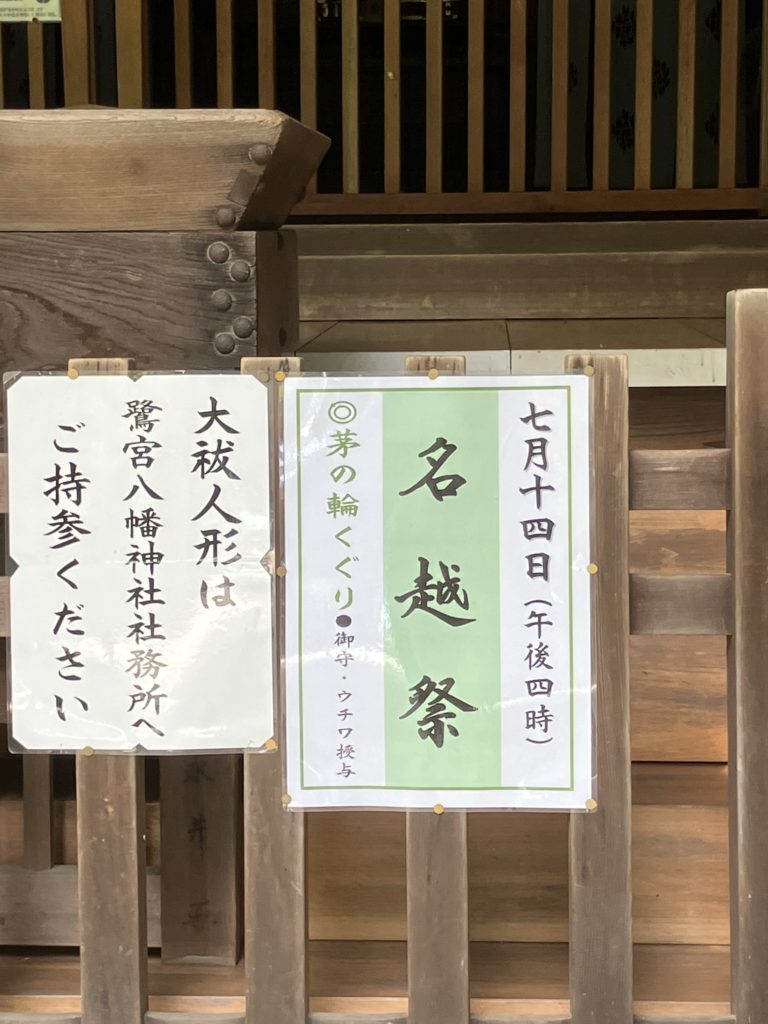 七月十四日(午後四時)
名越祭
◎茅の輪くぐり●御守・ウチワ授与
大祓人形は
鷺宮八幡神社社務所へ
ご持参ください